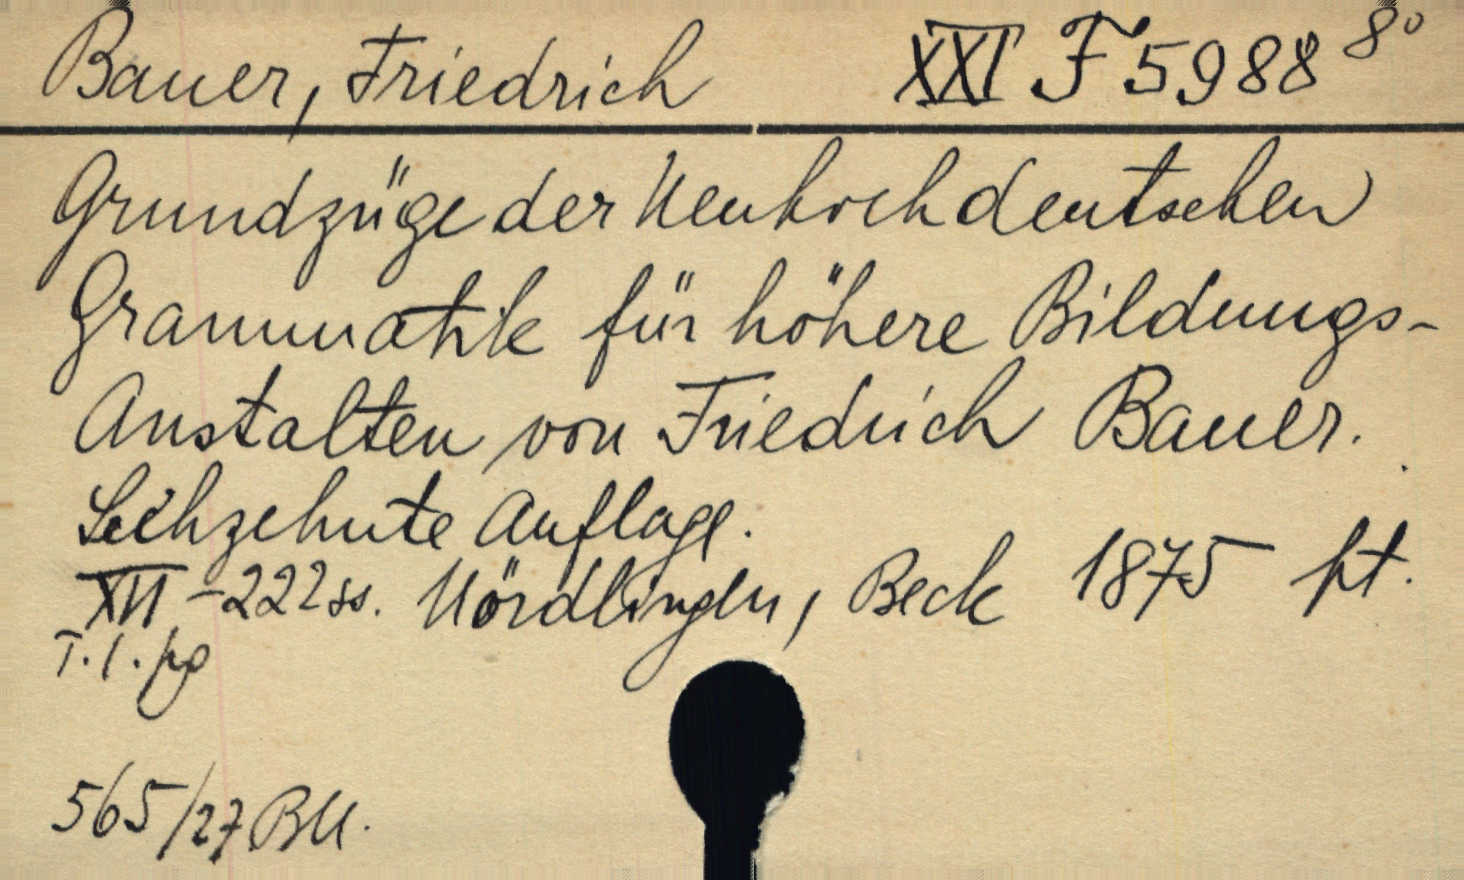 Bauer, Friedrich XXI F 5988 8º
Grundzüge der Neuhochdeutschen
Grammatik für höhere Bildungs-
Anstalten von Friedrich Bauer.
Sechzehnte Auflage.
XII-222 ss. Nördlingen, Beck 1875 pt.
T. 1. pg
565/27 BU.